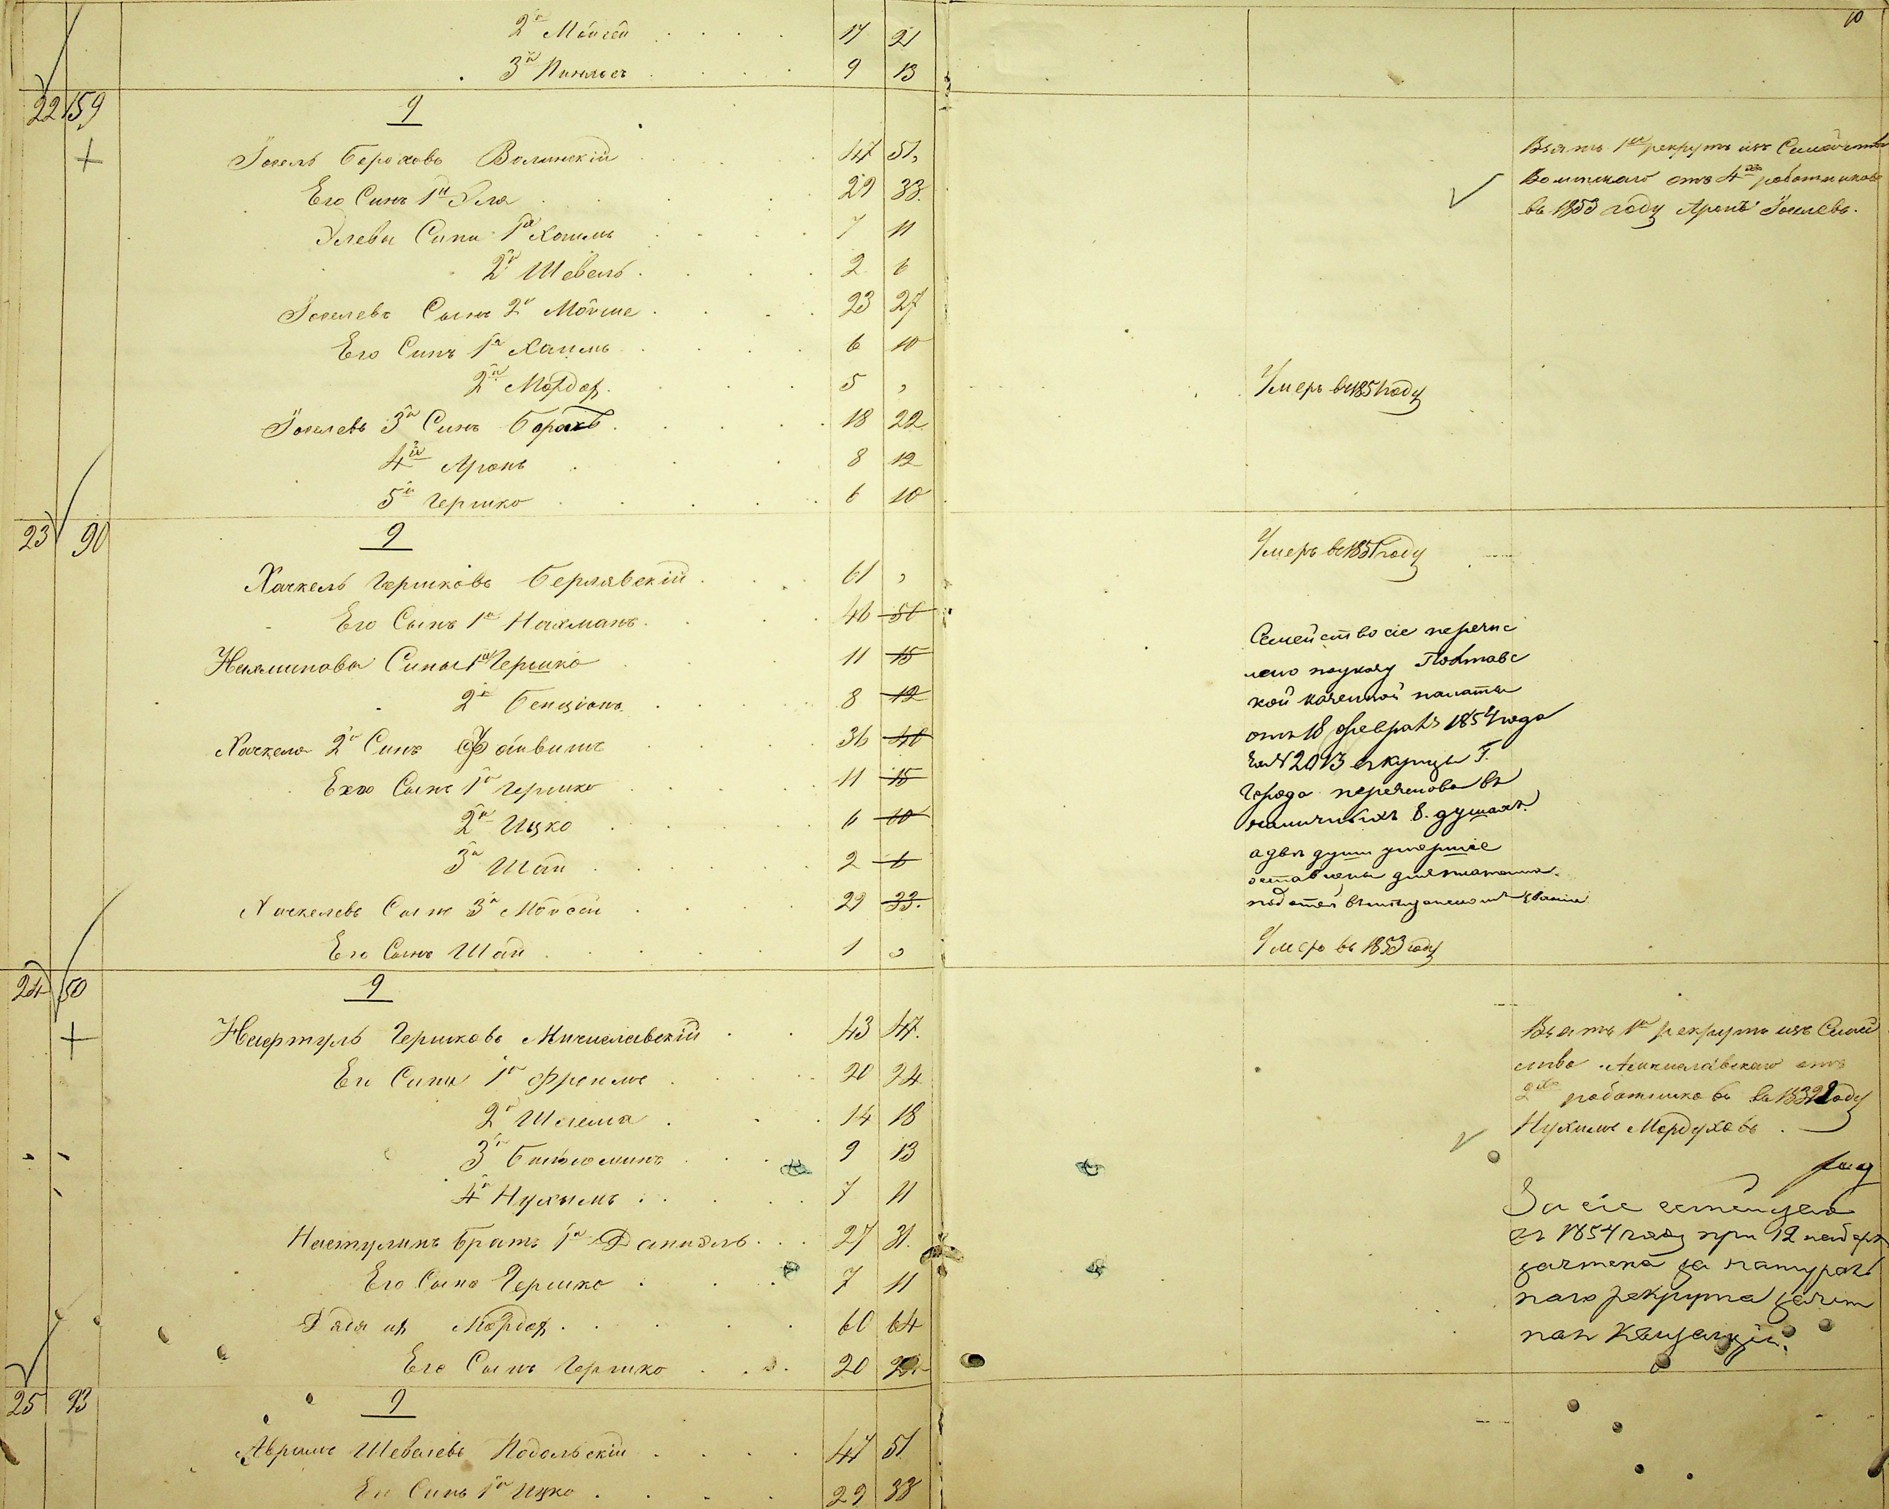 10
2й Мойсей 17 21
3й Пинхасъ 9 13
22 159 9
Іосель Бероховъ Волинскій 47 51
Его Синъ 1й Эля 29 33
Элеви Сини 1й Хаимъ 7 11
2й Шевель 2 6
Іоселевъ Сынъ 2й Мойше 23 27
Его Синъ 1й Хаимъ 6 10
2й Мордох 5 „ Умеръ въ 1851 году
Іоселевъ 3й Синъ Борохъ 18 22
4й Аронъ 8 12
5й Гершко 6 10
Взятъ 1й рекрутъ изъ Семейства
Волинскаго отъ 4хъ работниковъ
въ 1853 году Аронъ Іоселевъ.
23 90 9
Хаскель Гершковъ Берлявскій 61 „ Умеръ въ 1851 году
Его Сынъ 1й Нахманъ 46 50
Нахманова Сины 1й Гершко 11 15
2й Бенціонъ 8 12
Хаскеля 2й Синъ Файвишъ 36 40
Его Сынъ 1й Гершко 11 15
2й Ицко 6 10
3й Шая 2 6
Хаскелевъ Сынъ 3й Мойсей 29 33
Его Сынъ Шая 1 „ Умеръ въ 1853 году
Семейство сіе перечис
лено по указу Полтавс
кой казенной палаты
отъ 18 февраля 1854 года
за № 2013 въ купцы Г.
Города
наличныхъ 8. душахъ
а две души умершіе
оставлены для платежа
податей въ мещанскомъ званіи
24 50 9
Гершковъ Мичиславскій 43 47
Его Сини 1й Фроимъ 20 24
2й Шлема 14 18
3й Биньоминъ 9 13
4й Нухымъ 7 11
Братъ 1й Даниэль 27 31
Его Сынъ Гершко 7 11
Дядя их Мордох 60 64
Его Сынъ Гершко 20 24
Взятъ 1й рекрутъ изъ Семей
ства Мичиславскаго отъ
2хъ работниковъ въ году
Нухимъ Мордуховъ
За сіе семейство
въ 1854 году при 12 наборе
зачтена за натураль
наго рекрута зачет
ная Квитанція.
25 93 9
Абрамъ Шевелевъ Подольскій 47 51
Его Синъ 1й Ицко 29 33